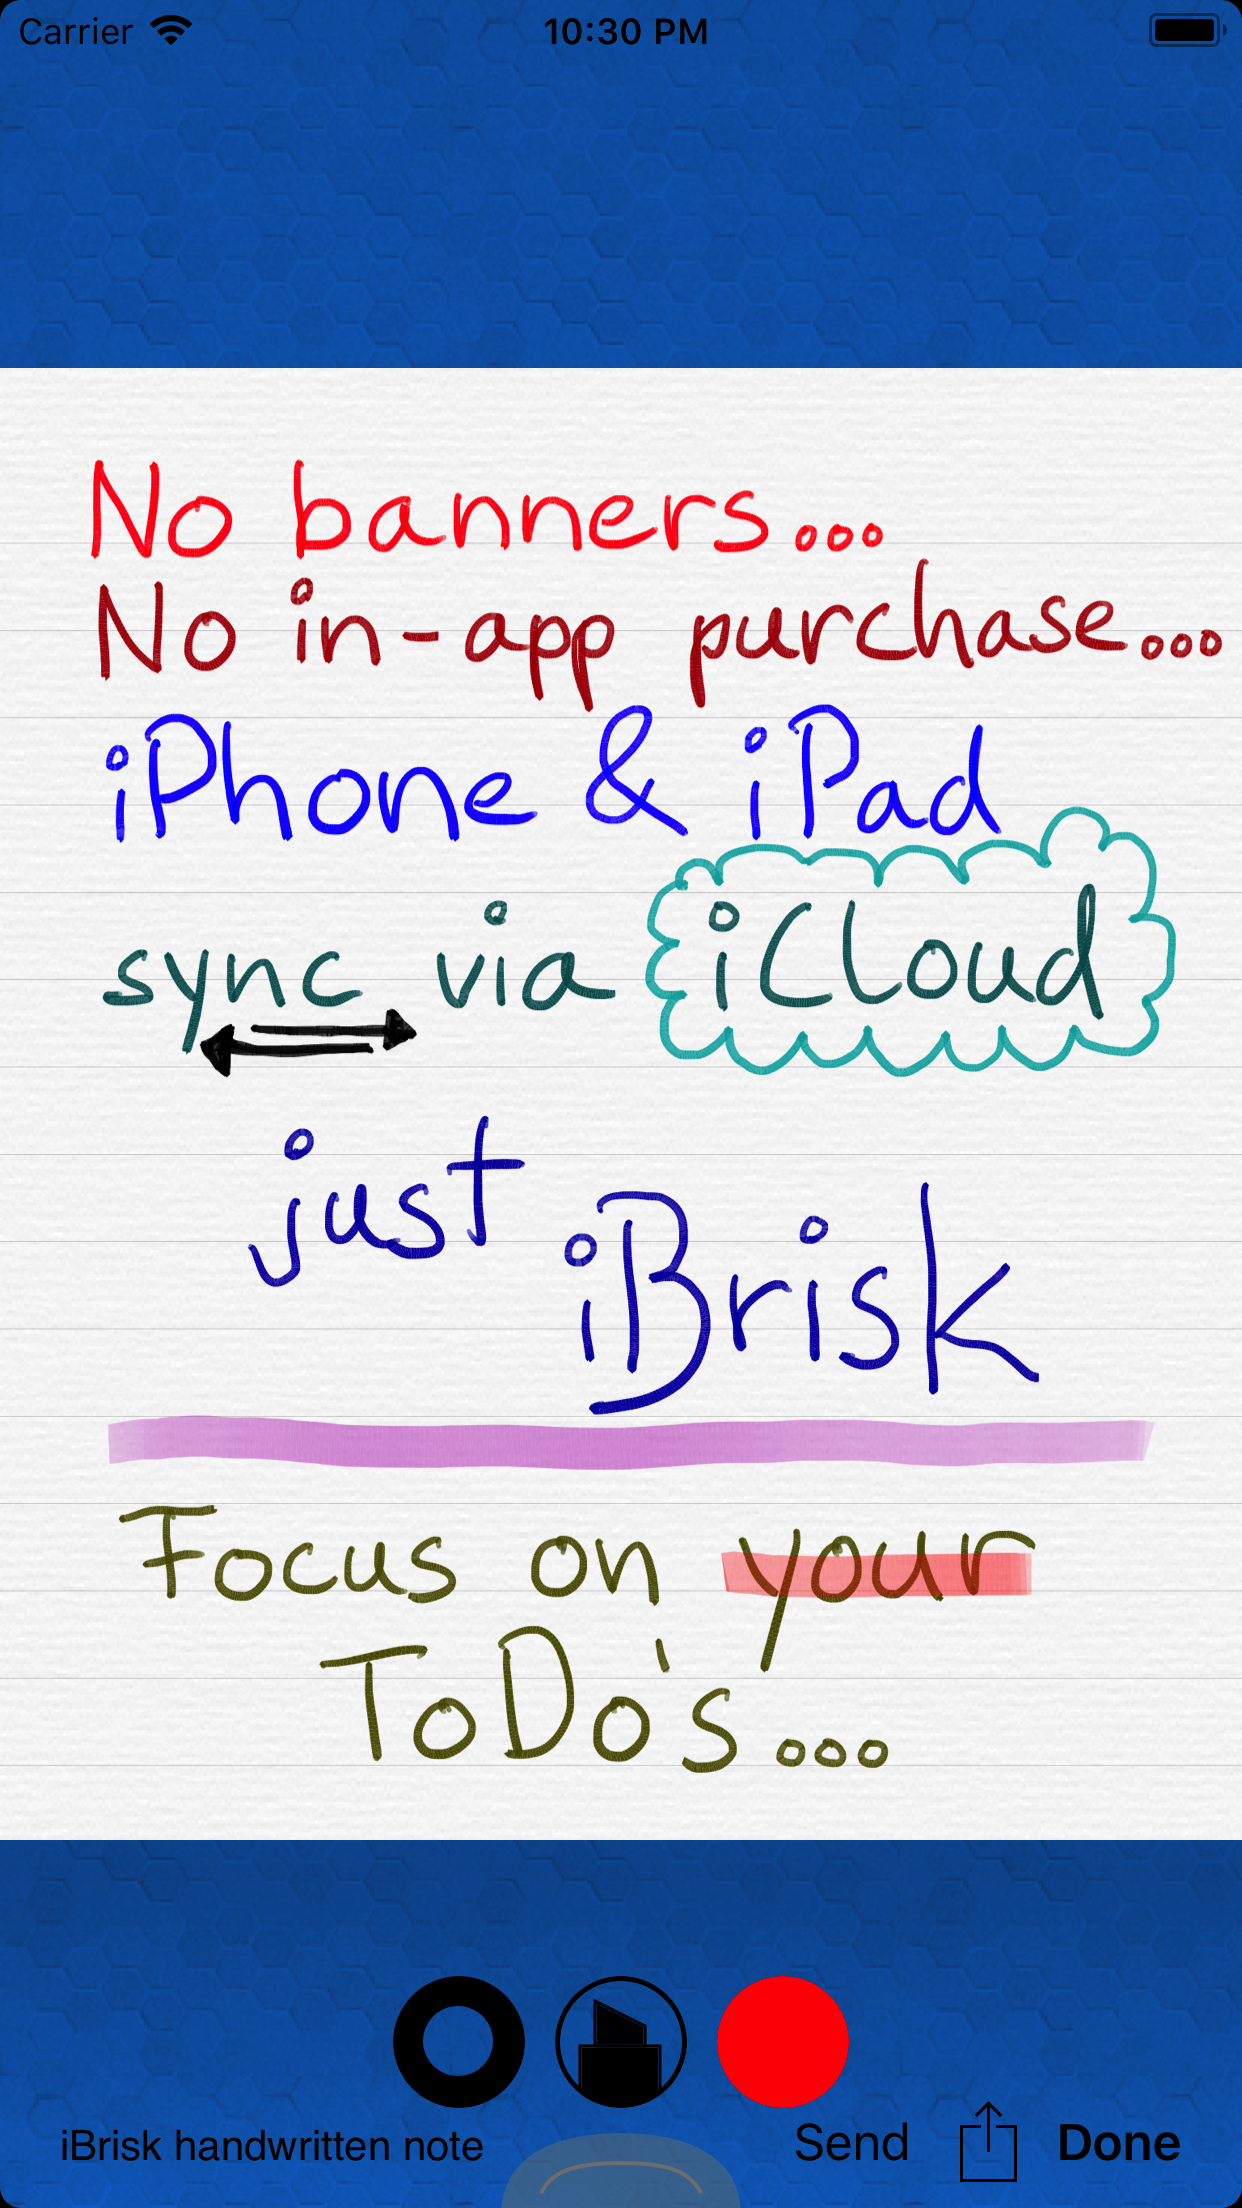 Carrier 10:30 PM
No banners...
No in-app purchase...
iPhone & iPad
sync via iCloud
just
iBrisk
Focus on your
ToDo's...
iBrisk handwritten note Send Done